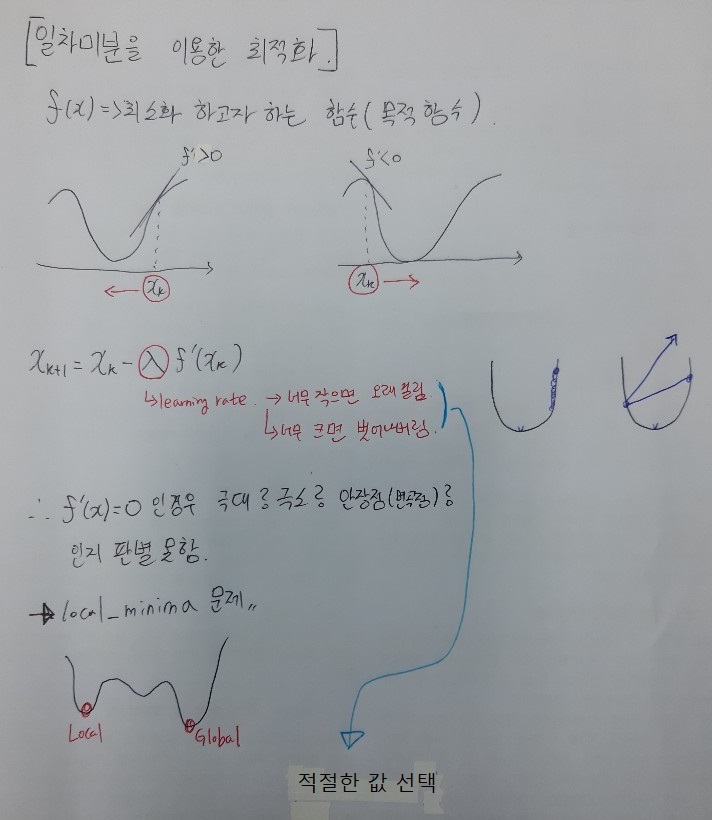 [일차미분을 이용한 최적화.]
f(x) => 최소화 하고자 하는 함수(목적함수).
f'>0
f'<0
xₖ
xₖ
xₖ₊₁ = xₖ - λ f'(xₖ)
↳ learning rate. → 너무 작으면 오래걸림.
↳ 너무 크면 벗어나버림.
∴ f'(x)=0 인경우 극대점 극소점 안장점(변곡점)점
인지 판별 못함.
→ local_minima 문제〃
Local
Global
적절한 값 선택